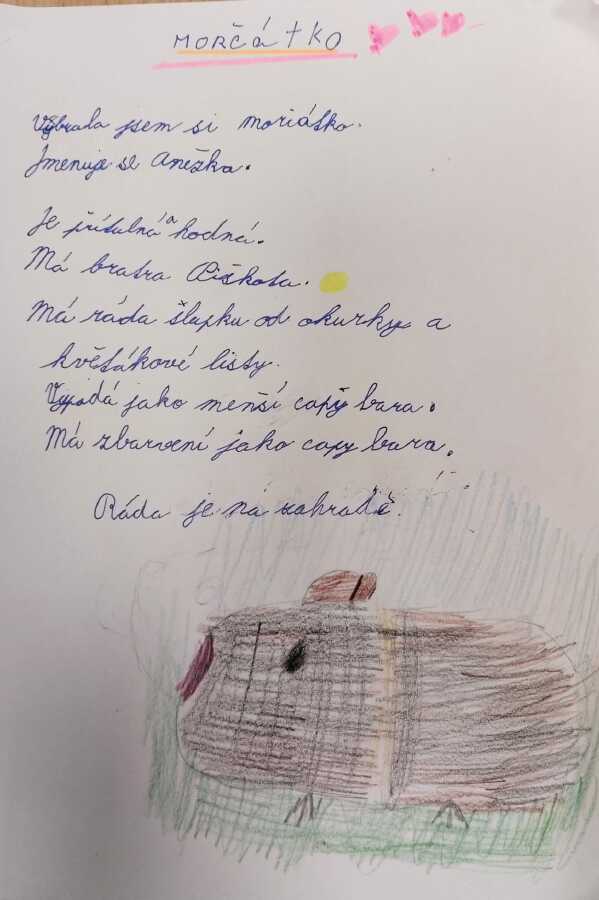 MORČÁTKO
Vybrala jsem si morčátko.
Jmenuje se Anežka.
Je přítulná a hodná.
Má bratra Piškota.
Má ráda šlupku od okurky a
květákové listy.
Vypadá jako menší capy bara.
Má zbarvení jako capy bara.
Ráda je ná zahradě.